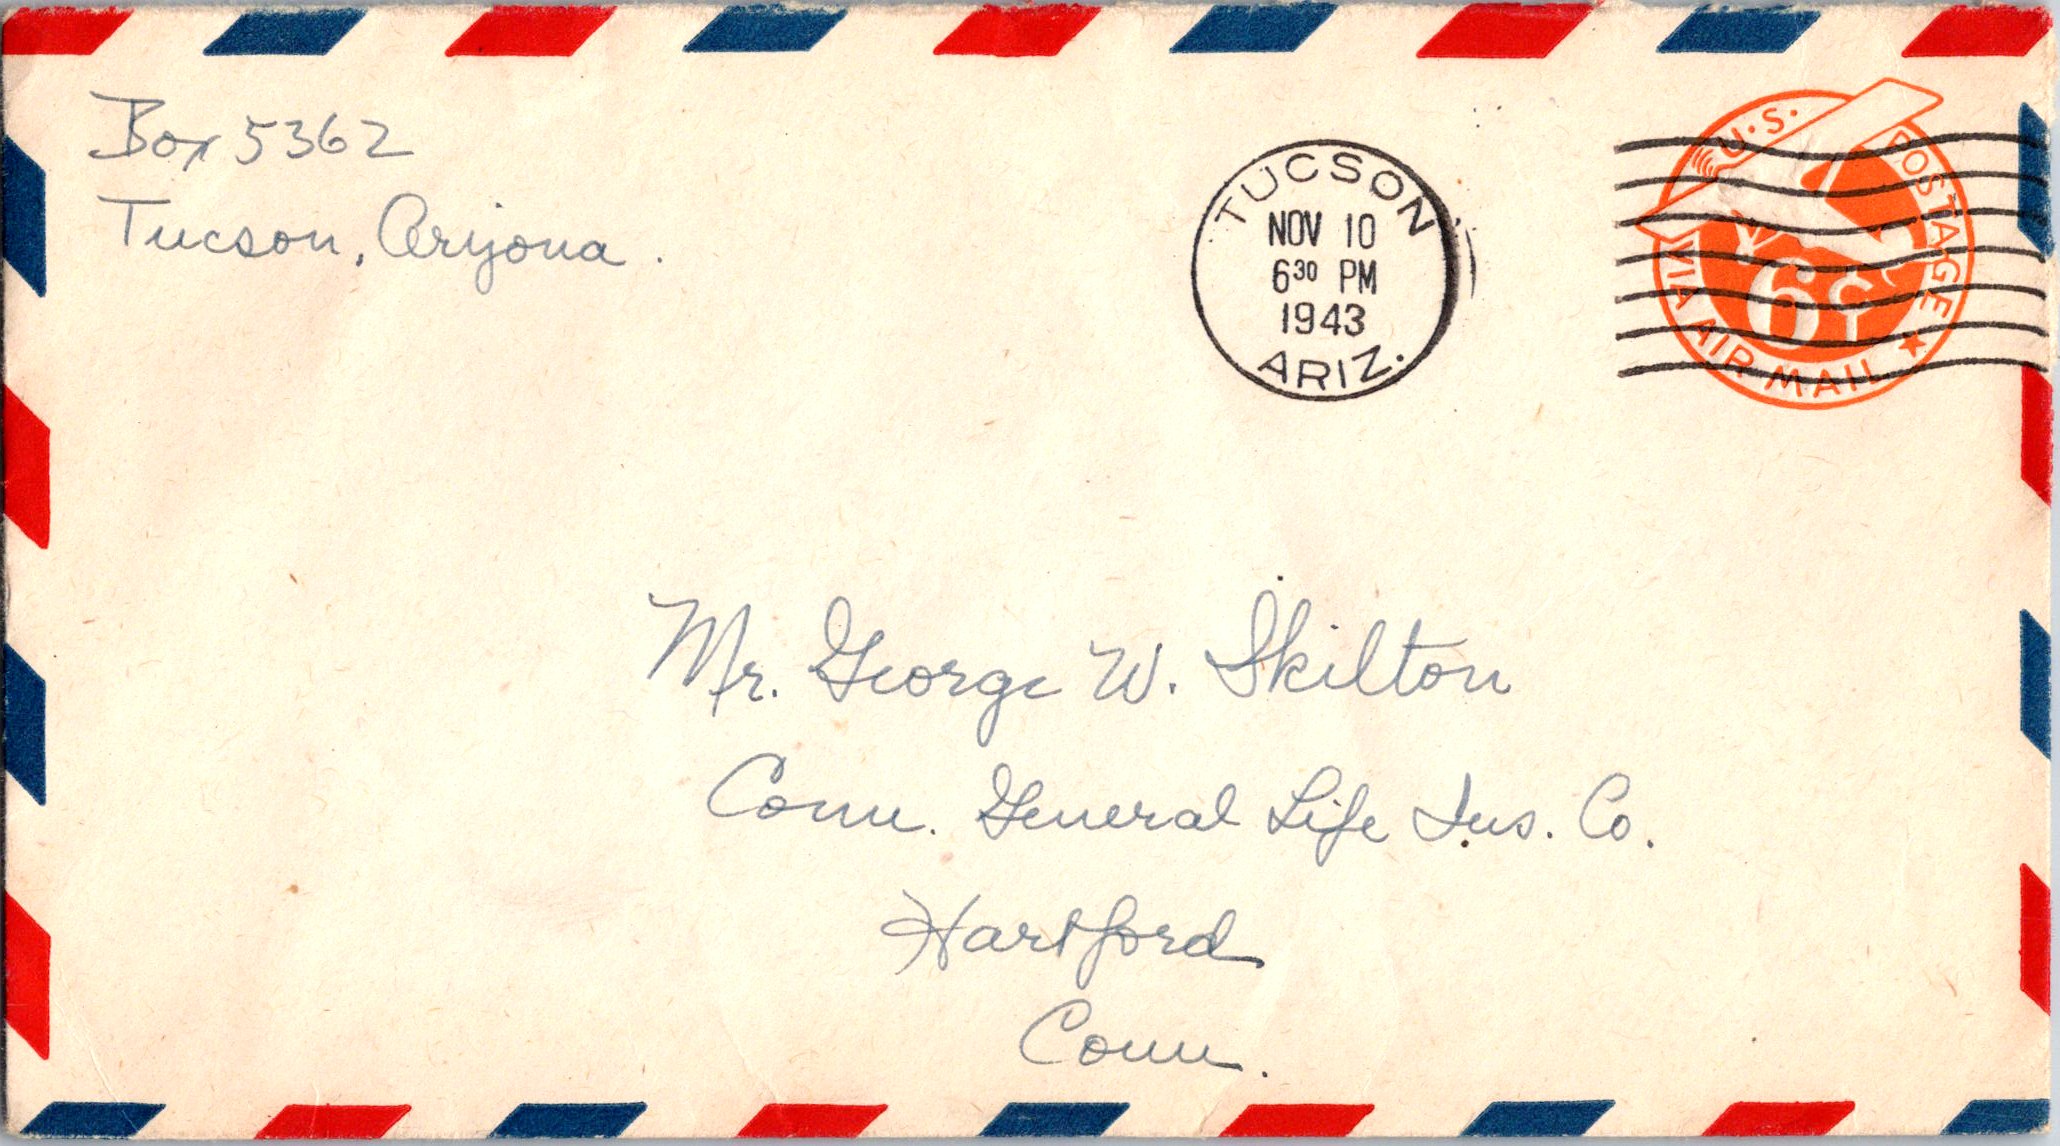 Box 5362
Tucson, Arizona.
TUCSON
NOV 10
6³⁰ PM
1943
ARIZ.
U.S. POSTAGE
6¢
VIA AIR MAIL
Mr. George W. Skilton
Conn. General Life Ins. Co.
Hartford
Conn.